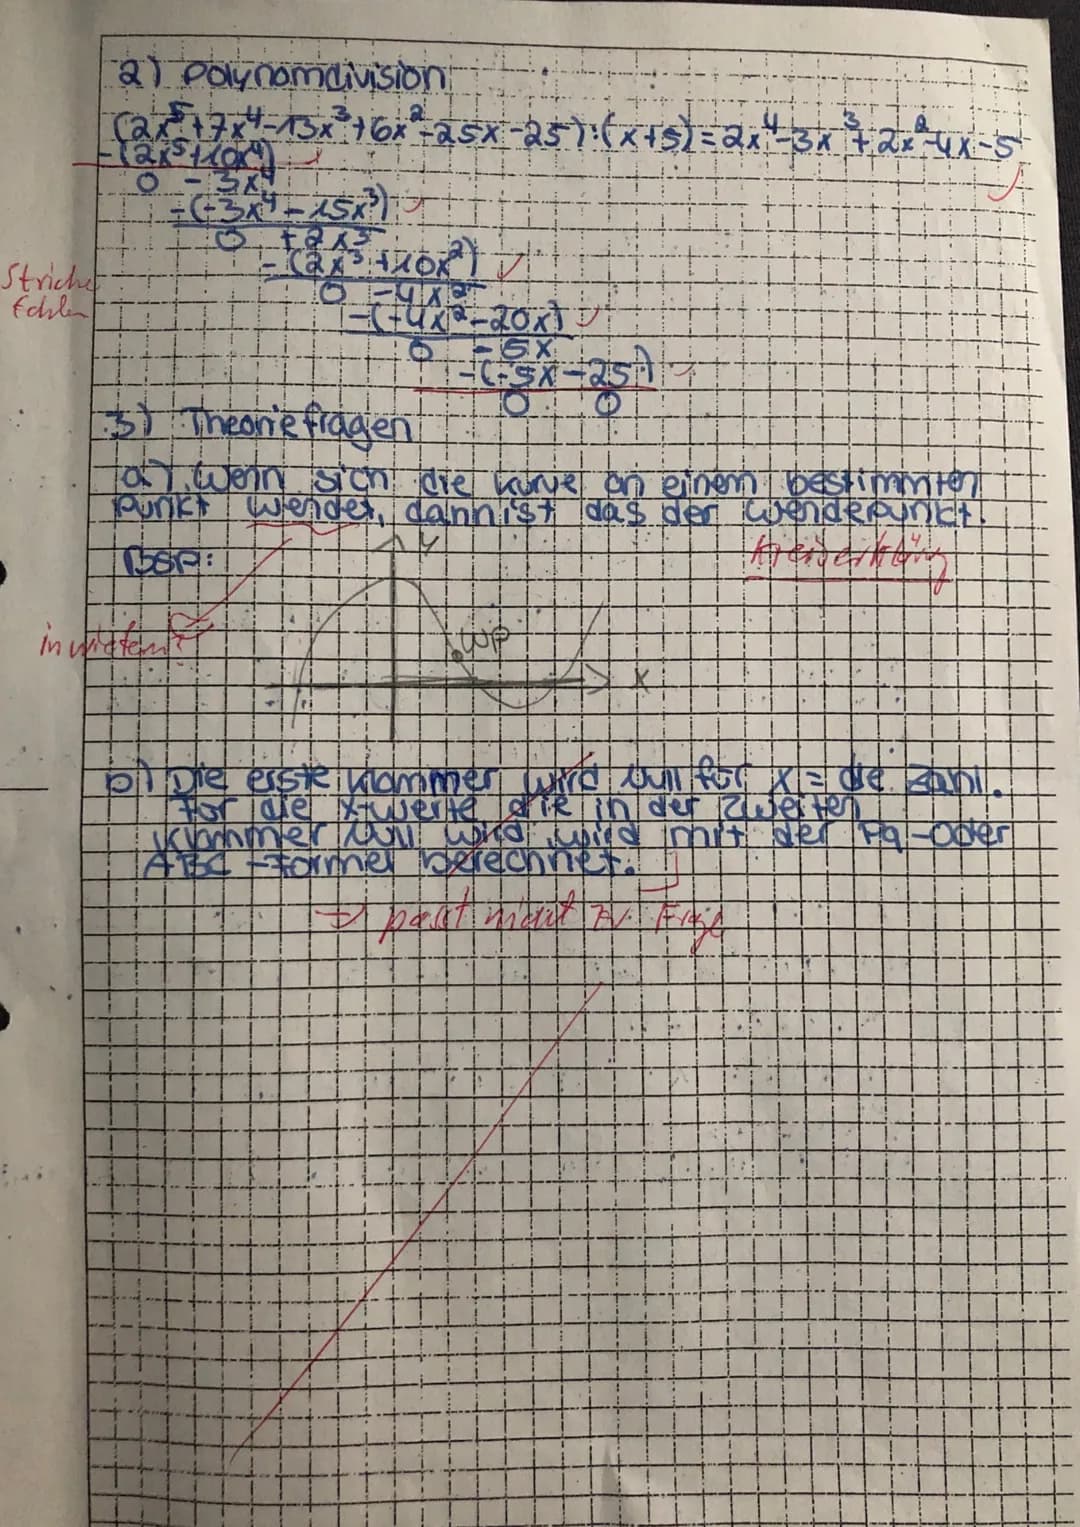 2) Polynomdivision
(2x⁵+7x⁴-13x³+6x²-25x-25):(x+5)=2x⁴-3x³+2x²-4x-5
-(2x⁵+10x⁴)
0 -3x⁴
-(-3x⁴-15x³)
0 +2x³
-(2x³+10x²)
Striche
fehlen
0 -4x²
-(-4x²-20x)
0 -5x
-(-5x-25)
0 0
3) Theoriefragen
a) Wenn sich die Kurve an einem bestimmten
Punkt wendet, dann ist das der Wendepunkt.
BSP:
y
inwiefern?
WP
x
b) Die erste Klammer wird Null für x = die Zahl.
Für die x-Werte die in der zweiten
Klammer Null wird, wird mit der Pq-oder
ABC-Formel berechnet.
→ passt nicht zur Frage